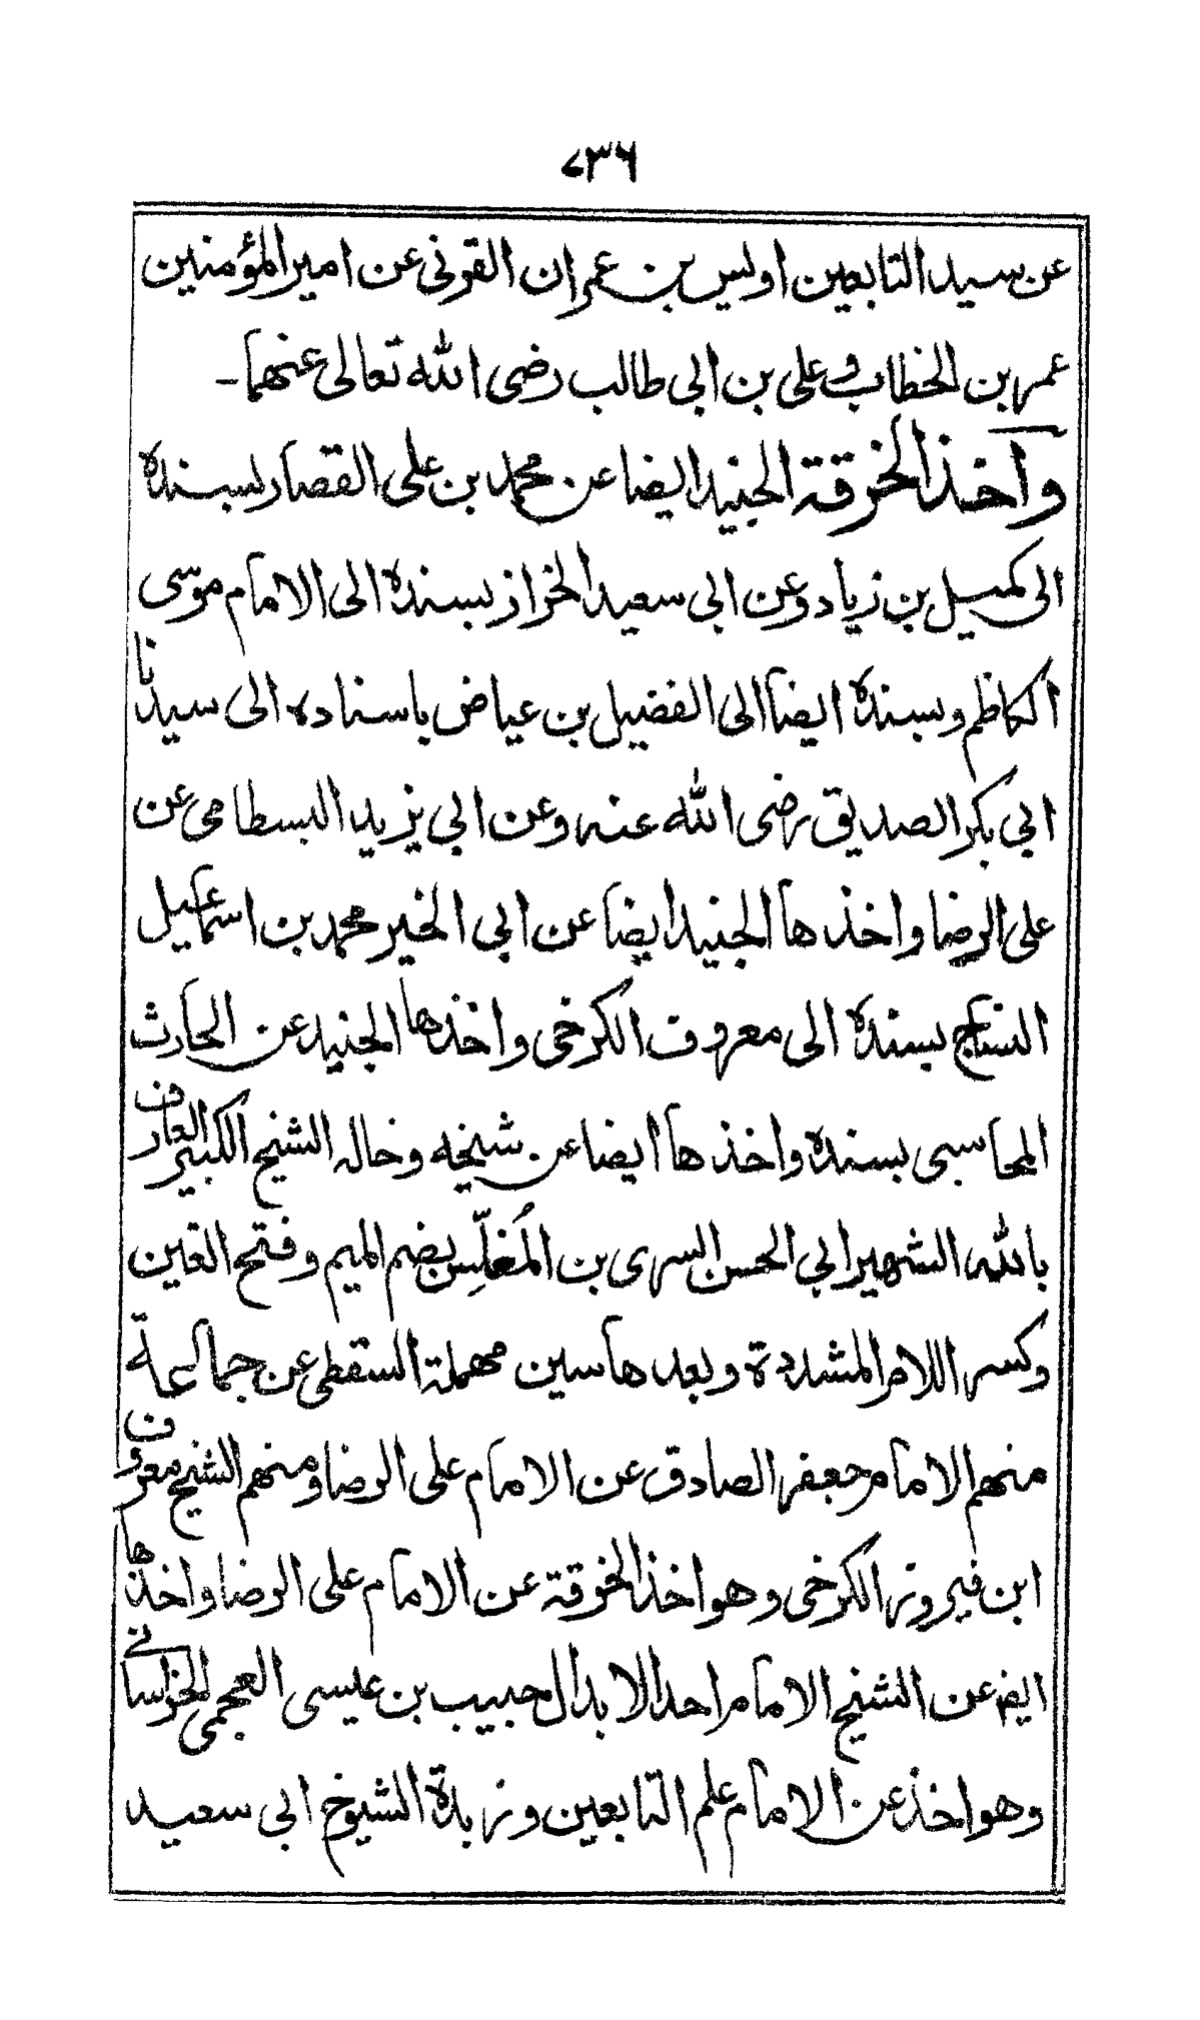 ۷۳۶
عن سيد التابعين اوليس بن عمران القرنى عن امير المؤمنين
عمر بن الخطاب و على بن ابى طالب رضى الله تعالى عنهما۔
واخذ الخرقة الجنيد ايضا عن محمد بن على القصار بسنده
الى كميل بن زياد وعن ابى سعيد الخراز بسنده الى الامام موسى
الكاظم وبسنده ايضا الى الفضيل بن عياض باسناده الى سيدنا
ابى بكر الصديق رضى الله عنه وعن ابى يزيد البسطامى عن
على الرضا واخذها الجنيد ايضا عن ابى الخير محمد بن اسماعيل
النساج بسنده الى معروف الكرخى واخذها الجنيد عن الحارث
المحاسبى بسنده واخذها ايضا عن شيخه وخاله الشيخ الكبير العارف
بالله الشهير ابى الحسن السرى بن المُغلِّس بضم الميم وفتح الغين
وكسر اللام المشددة وبعدها سين مهملة السقطى عن جماعة
منهم الامام جعفر الصادق عن الامام على الرضا ومنهم الشيخ معروف
ابن فيروز الكرخى وهو اخذ الخرقة عن الامام على الرضا واخذها
ايضا عن الشيخ الامام احد الابدال حبيب بن عيسى العجمى الخراسانى
وهو اخذ عن الامام علم التابعين وزبدة الشيوخ ابى سعيد